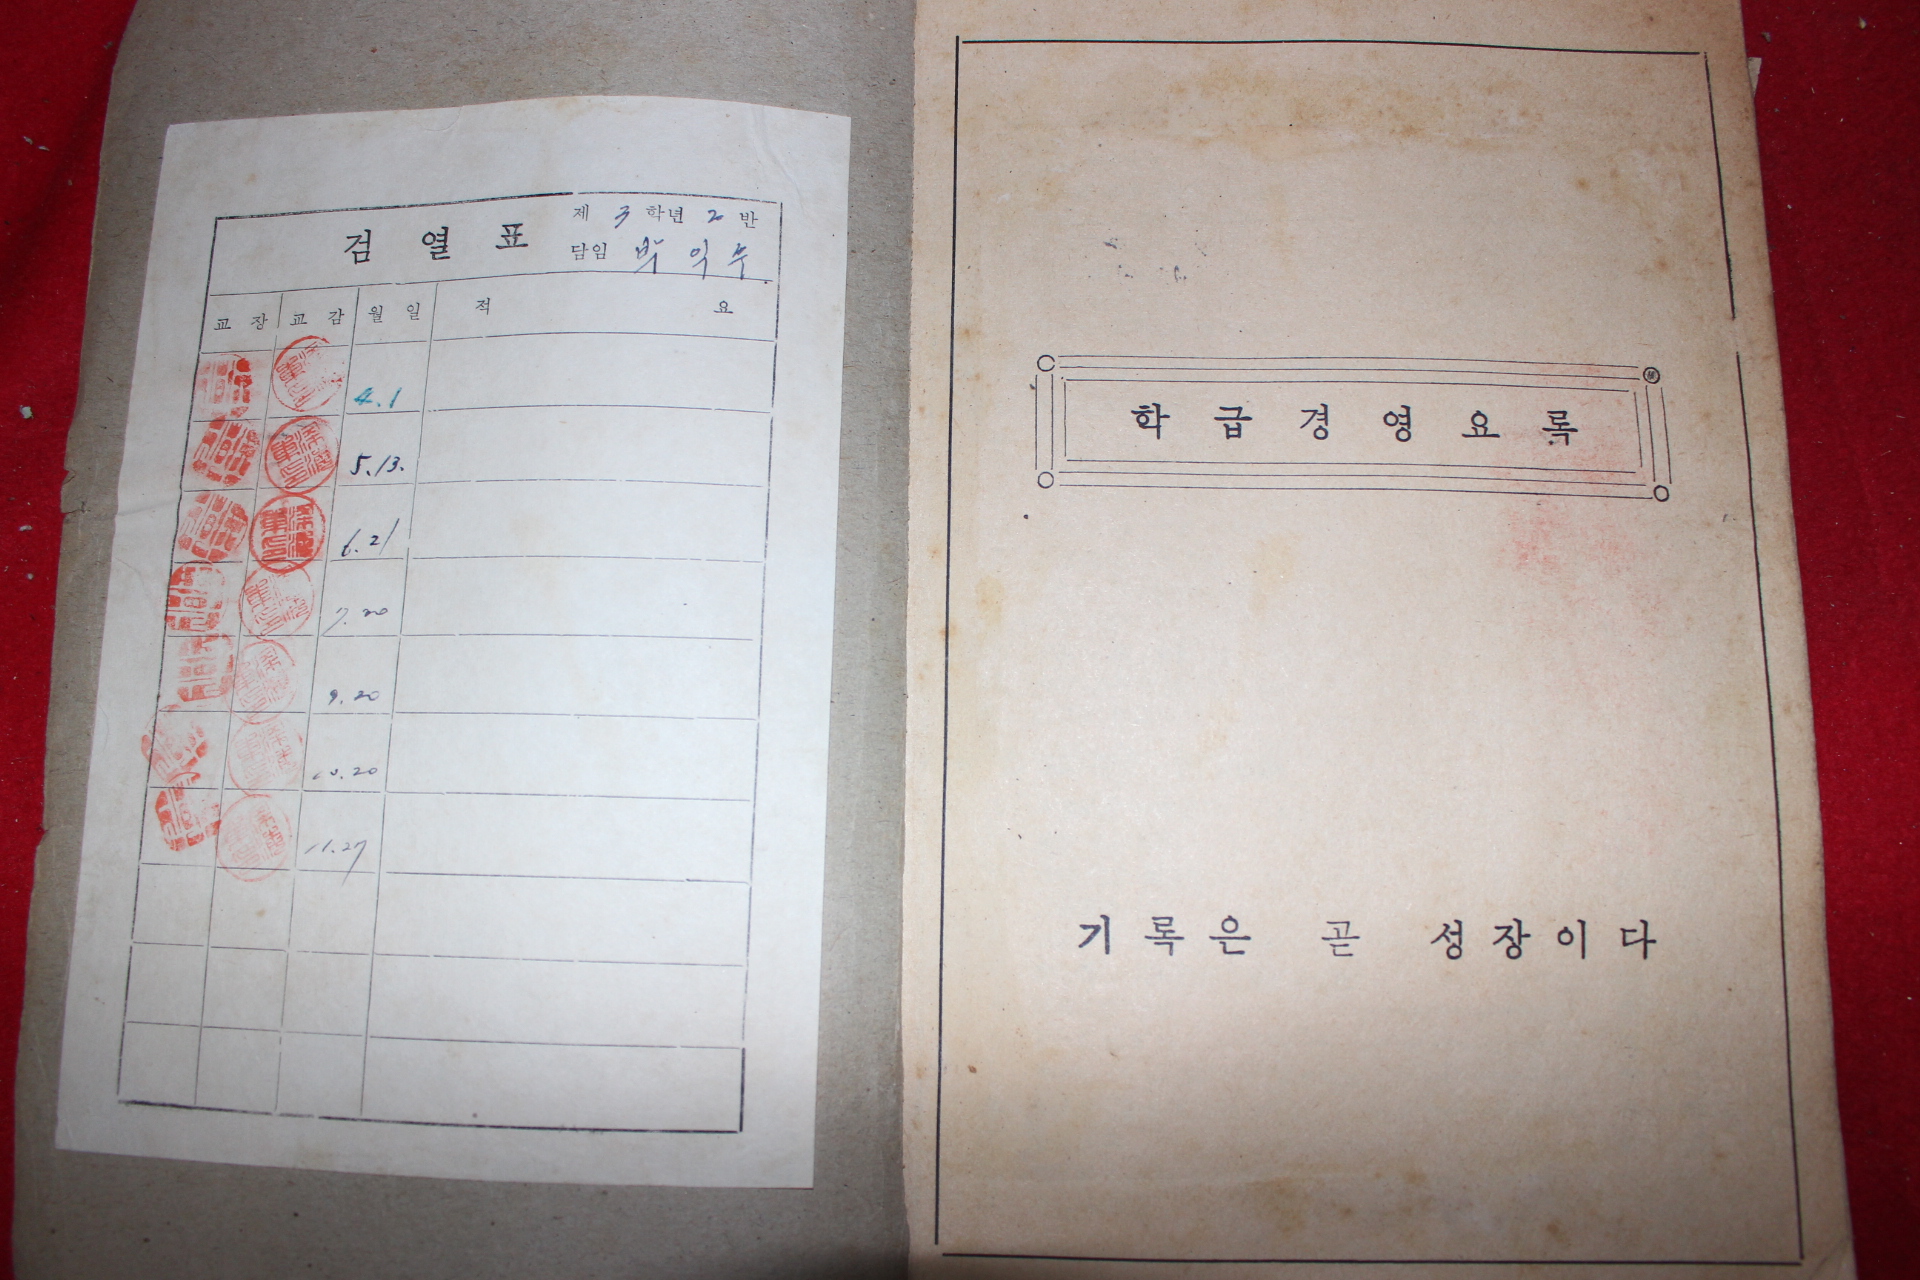 검 열 표
제 3 학년 2 반
담임 박 익 수
교 장 교 감 월 일 적 요
4.1
5.13.
6.21
7.20
9.20
10.20
11.27
학 급 경 영 요 록
기 록 은 곧 성 장 이 다